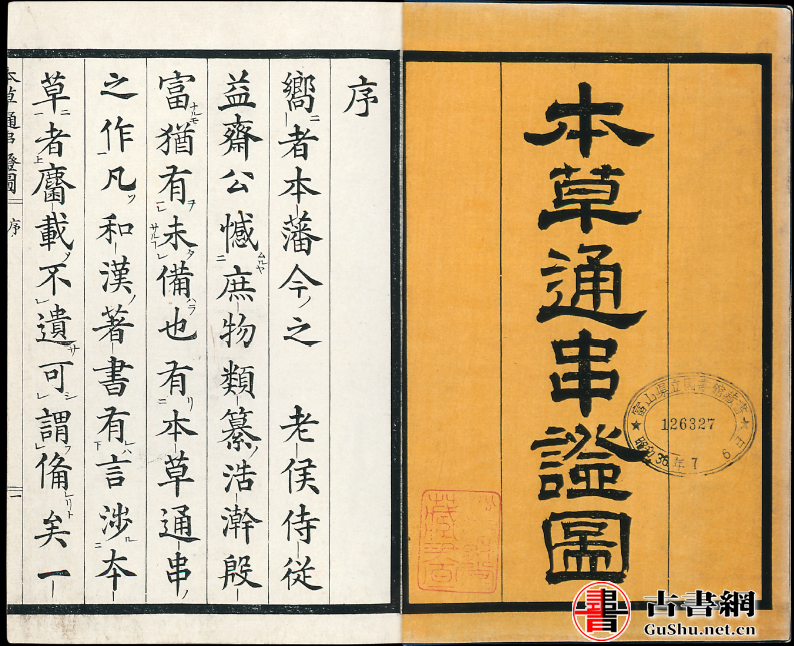 本草通串證圖
126327
昭和36年7
6
序
嚮者本藩今之　老侯侍從
益齋公憾庶物類纂浩瀚殷
富猶有未備也有本草通串
之作凡和漢著書有言涉本
草者麕載不遺可謂備矣一
本草通串證圖
序
一
書
古書網
GuShu.net.cn